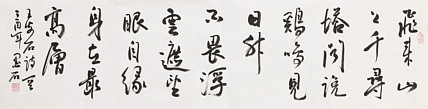 飛来山
上千尋
塔聞説
鷄鳴見
日升
不畏浮
雲遮望
眼自緣
身在最
高層
王安石詩